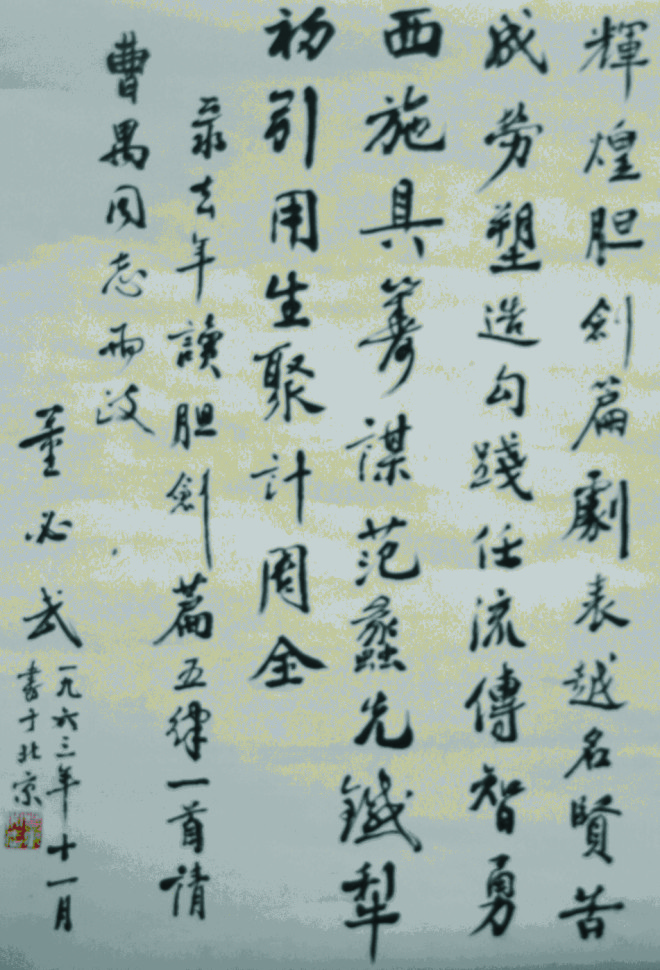 輝煌胆劍篇劇表越名賢苦
成勞塑造勾踐任流傳智勇
西施具籌謀范蠡先鐵犁
初引用生聚計周全
录去年讀胆劍篇五律一首請
曹禺同志两政
董必武
一九六三年十一月
書于北京